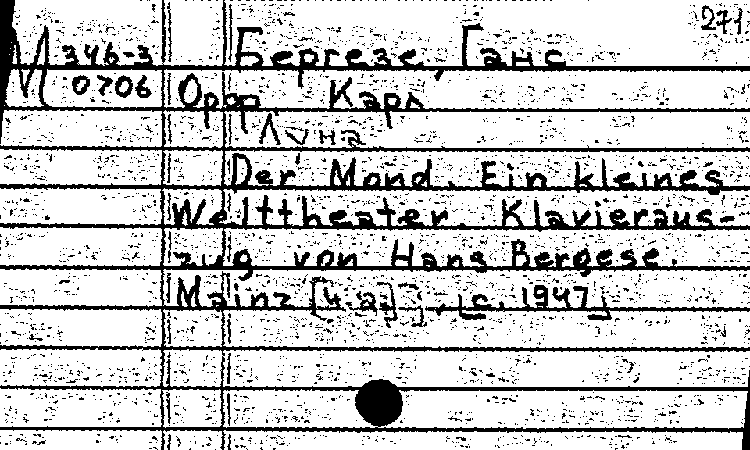 271
М 346-3 Бергезе, Ганс
0706 Орф, Карл
Луна
Der Mond. Ein kleines
Welttheater. Klavieraus-
zug von Hans Bergese.
Mainz [u.a.], [c. 1947]